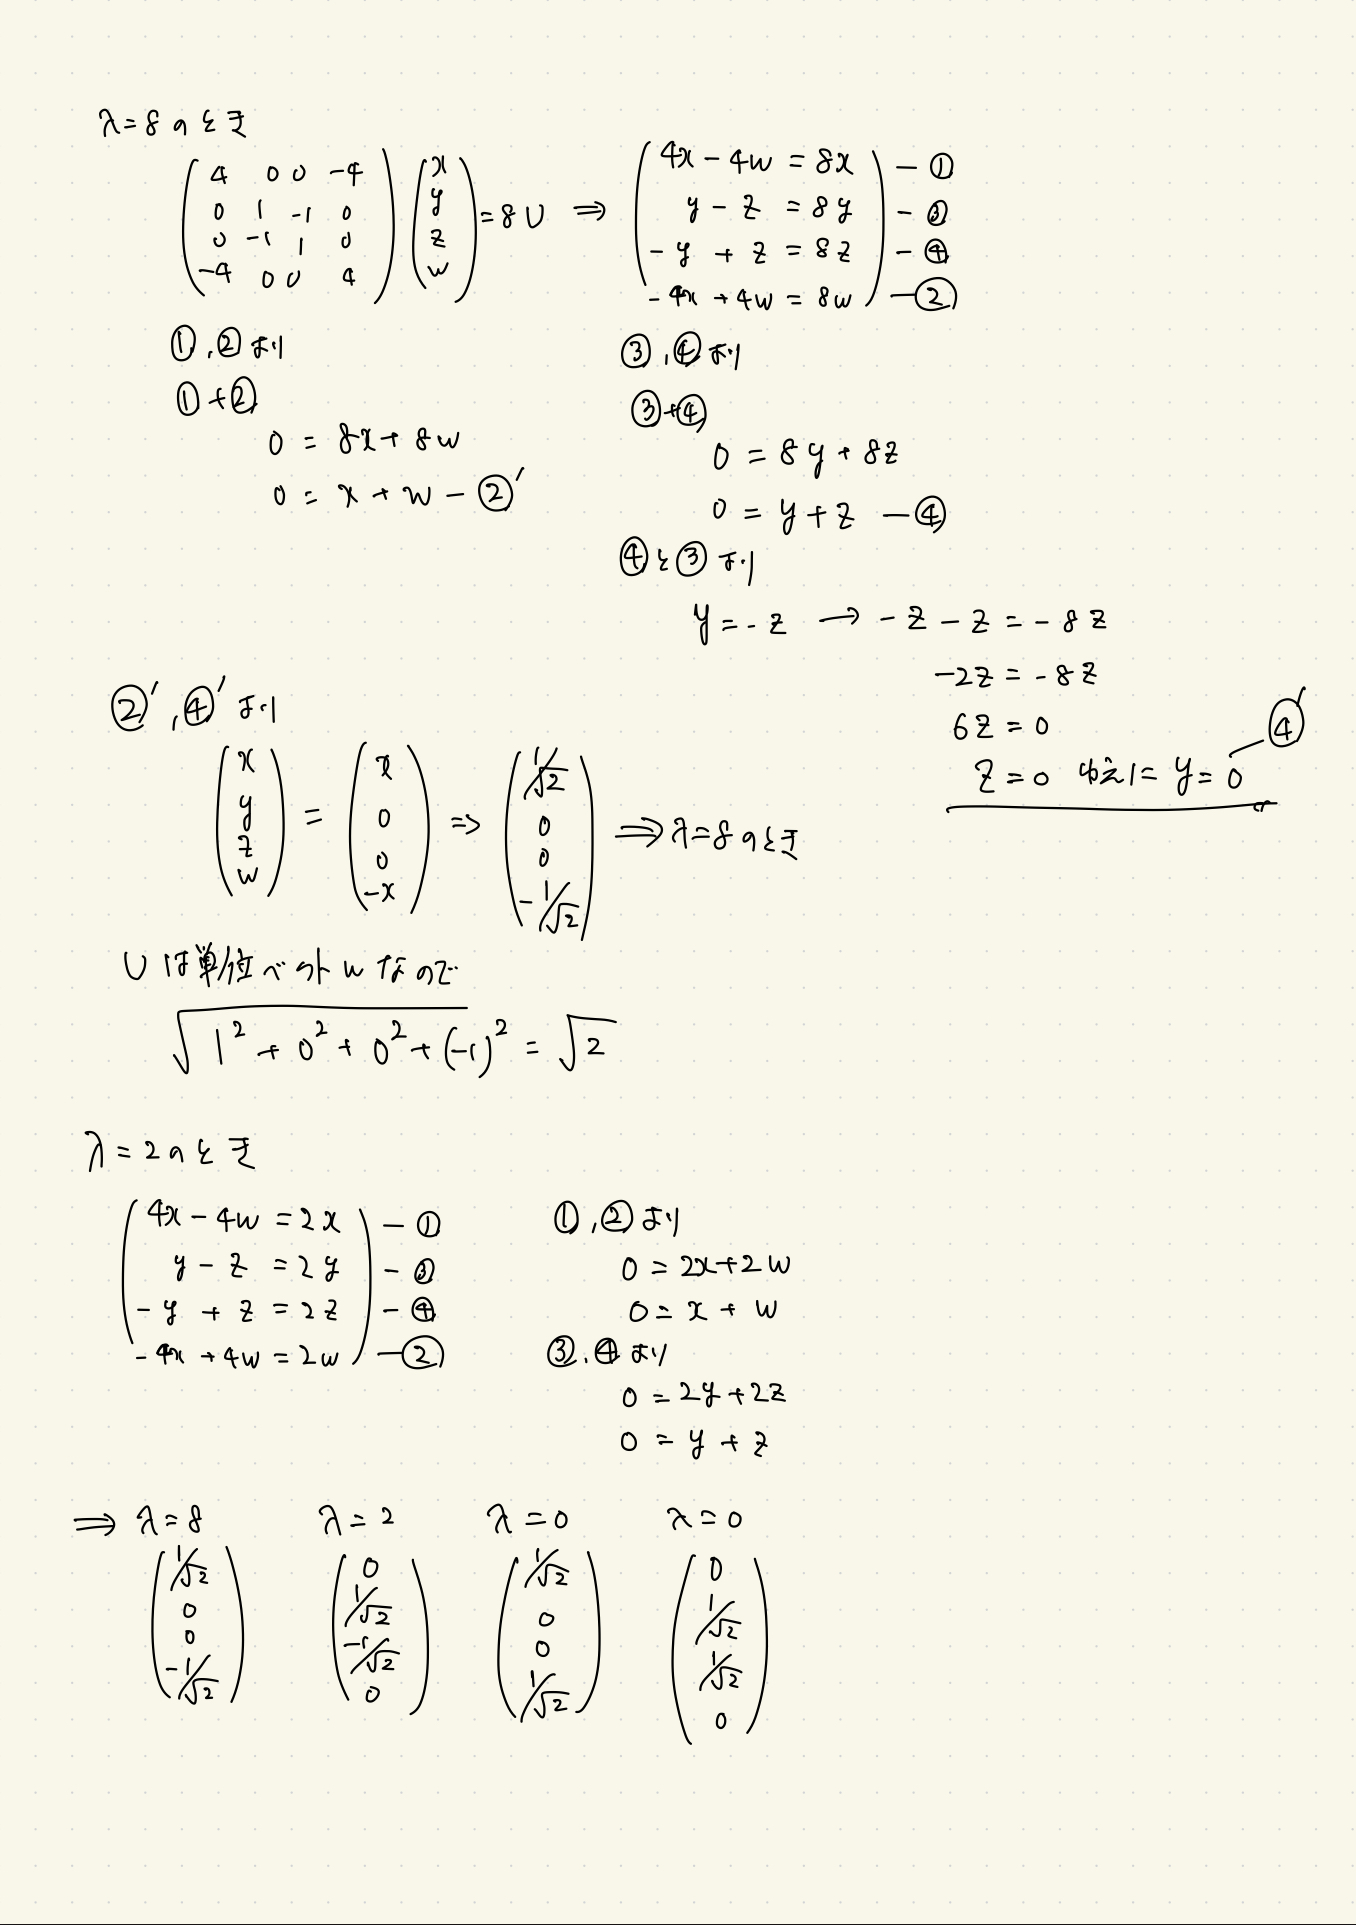 λ=8のとき
(4 0 0 -4
0 1 -1 0
0 -1 1 0
-4 0 0 4) (x y z w) = 8U ⇒
4x - 4w = 8x - ①
y - z = 8y - ③
-y + z = 8z - ④
-4x + 4w = 8w - ②
①,②より
①+②
0 = 8x + 8w
0 = x + w - ②'
③,④より
③+④
0 = 8y + 8z
0 = y + z - ④
④と③より
y = -z → -z - z = -8z
-2z = -8z
6z = 0
z = 0 ゆえに y = 0 ④'
②',④'より
(x y z w) = (x 0 0 -x) ⇒ (1/√2 0 0 -1/√2) ⇒ λ=8のとき
Uは単位ベクトルなので
√(1² + 0² + 0² + (-1)²) = √2
λ=2のとき
4x - 4w = 2x - ①
y - z = 2y - ③
-y + z = 2z - ④
-4x + 4w = 2w - ②
①,②より
0 = 2x + 2w
0 = x + w
③,④より
0 = 2y + 2z
0 = y + z
⇒ λ=8 λ=2 λ=0 λ=0
(1/√2 0 0 -1/√2) (0 1/√2 -1/√2 0) (1/√2 0 0 1/√2) (0 1/√2 1/√2 0)